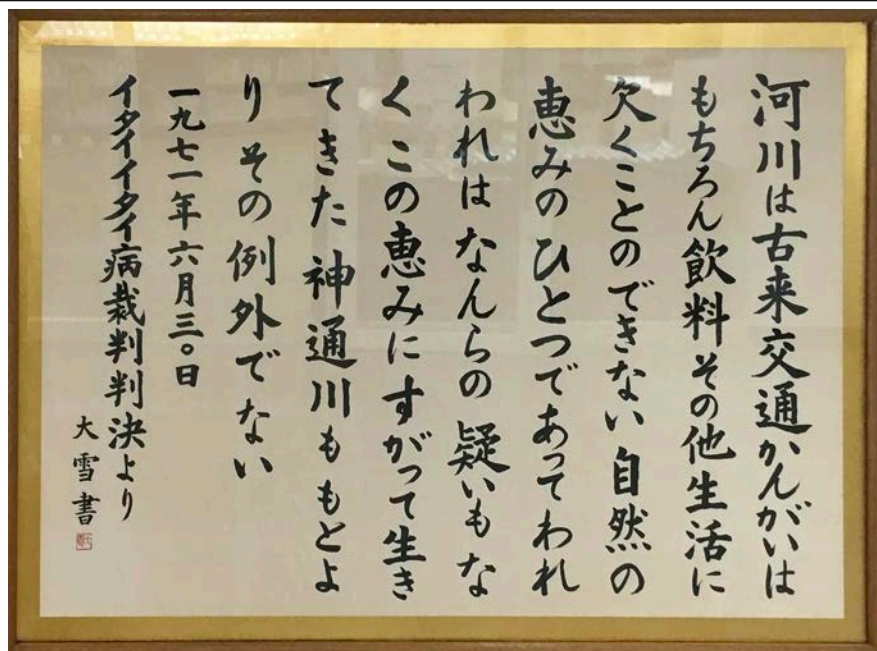 河川は古来交通かんがいは
もちろん飲料その他生活に
欠くことのできない自然の
恵みのひとつであってわれ
われはなんらの疑いもな
くこの恵みにすがって生き
てきた神通川ももとよ
りその例外でない
一九七一年六月三〇日
イタイイタイ病裁判判決より
大雪書